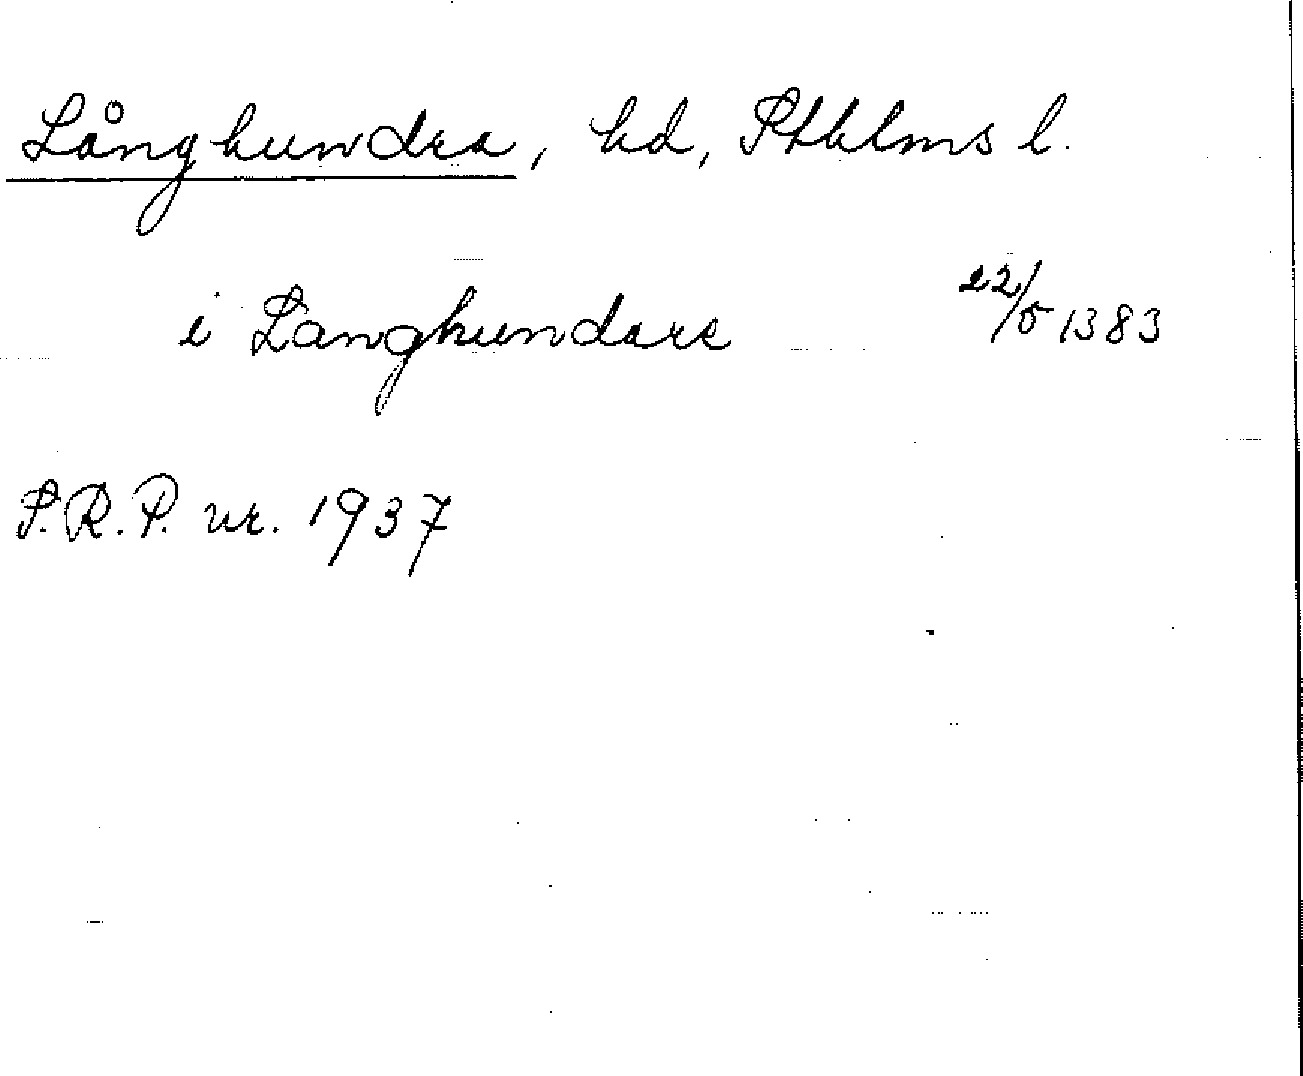 Långhundra, hd, Sthlms l.
i Langhundare 22/5 1383
S.R.P. nr. 1937